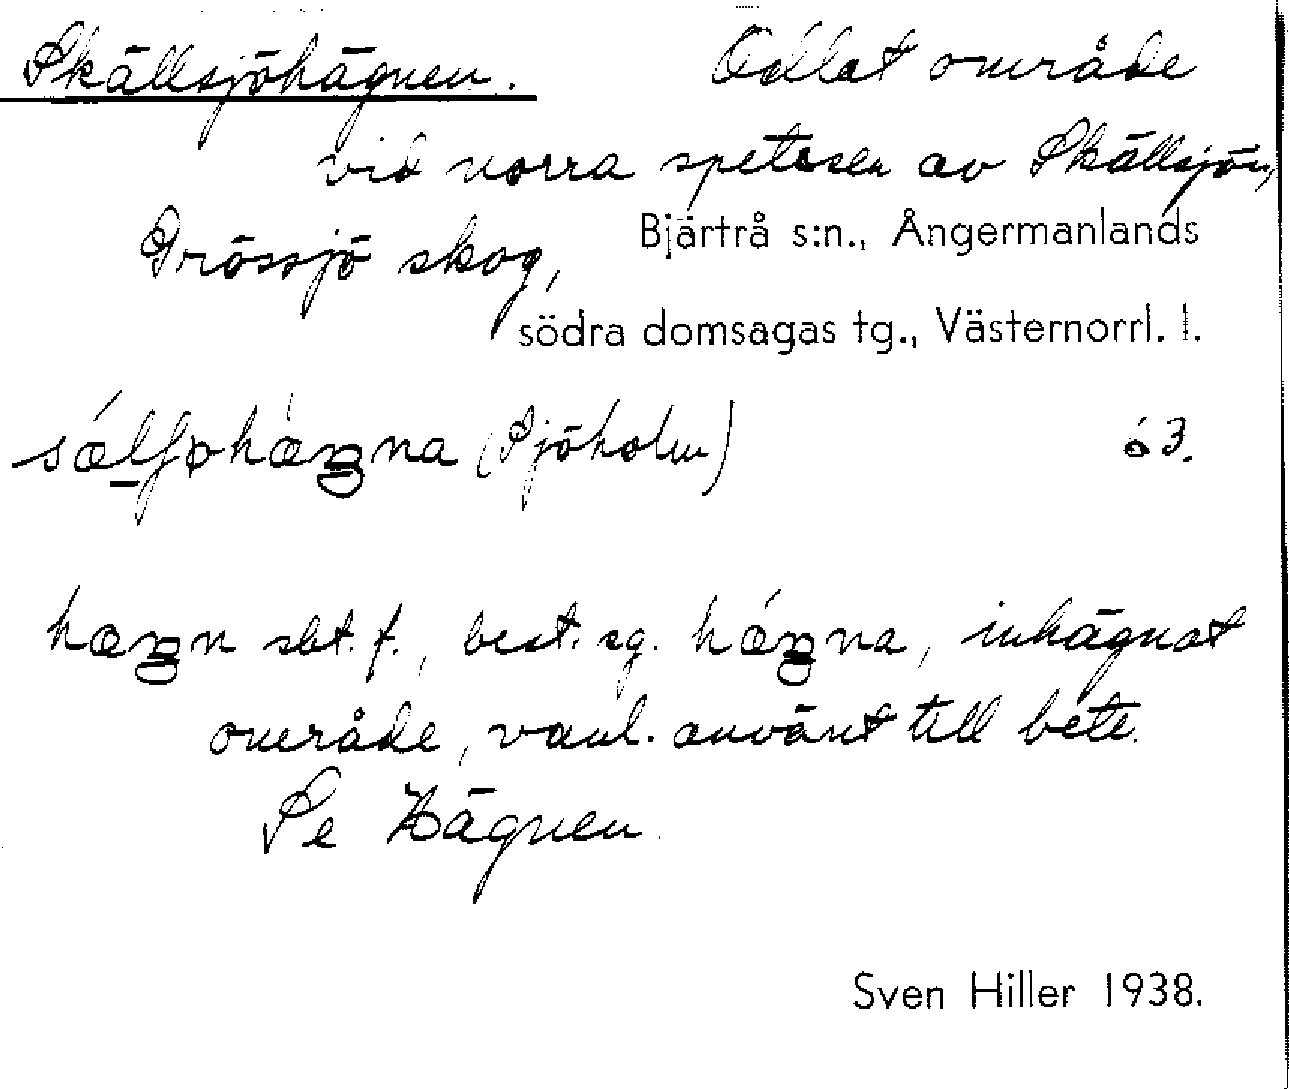 Skällsjöhägnen. Odlat område
vid norra spetsen av Skällsjön,
Grössjö skog, Bjärtrå s:n., Ångermanlands
södra domsagas tg., Västernorrl. l.
(Sjöholm) ö 3.
sbt. f., best. sg. inhägnat
område, vanl. använt till bete.
Se Hägnen.
Sven Hiller 1938.